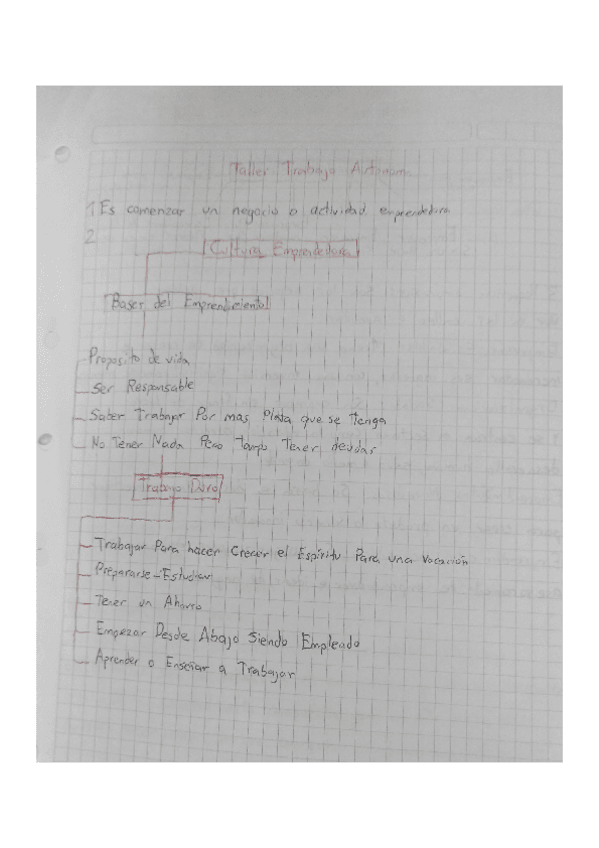 Taller Trabajo Autonomo
1 Es comenzar un negocio o actividad emprendedora
2
Cultura Emprendedora
Bases del Emprendimiento
Proposito de vida
Ser Responsable
Saber Trabajar Por mas Plata que se tenga
No Tener Nada Pero Tampo Tener deudas
Trabajo Duro
Trabajar Para hacer Crecer el Espiritu Para una Vocación
Prepararse-Estudiar
Tener un Ahorro
Empezar Desde Abajo Siendo Empleado
Aprender o Enseñar a Trabajar